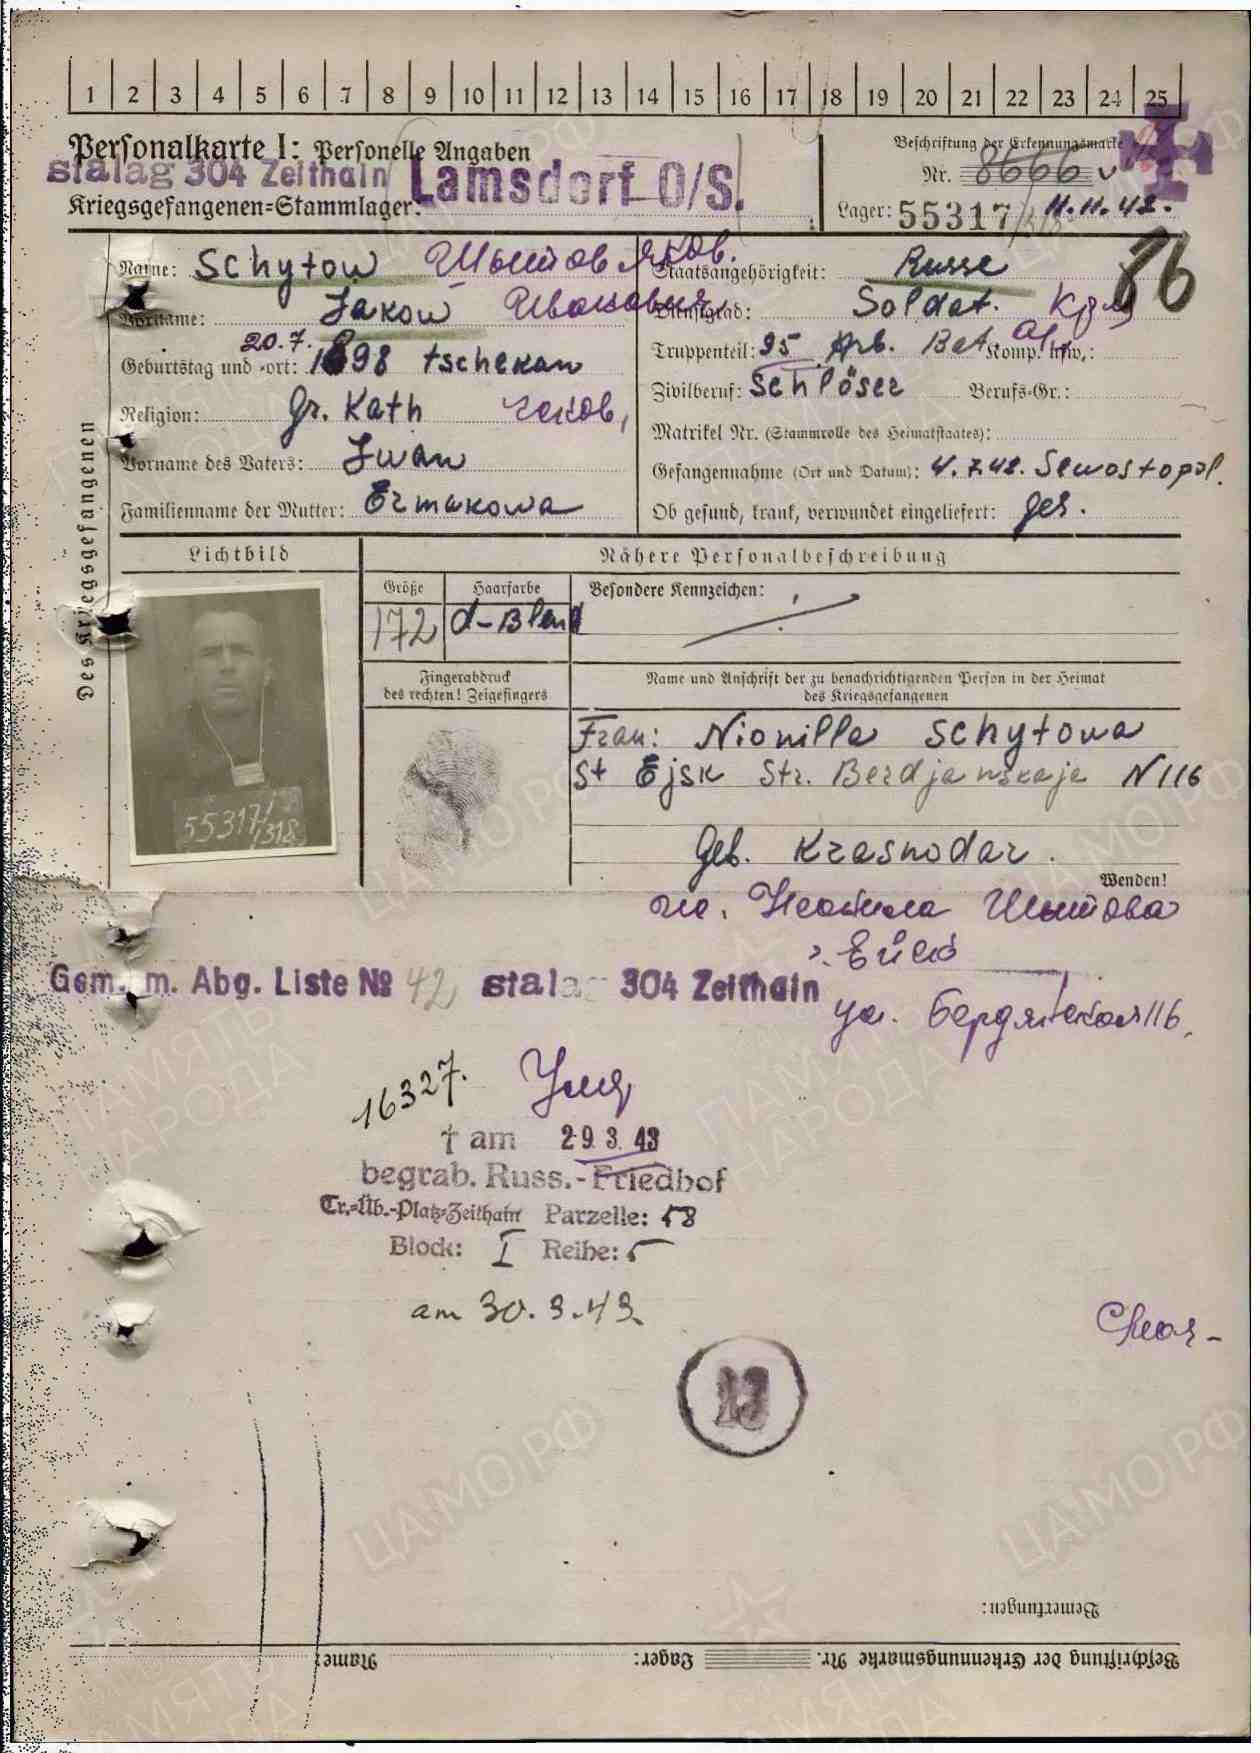 1 2 3 4 5 6 7 8 9 10 11 12 13 14 15 16 17 18 19 20 21 22 23 24 25
Personalkarte I: Personelle Angaben
Stalag 304 Zeithain Lamsdorf O/S.
Kriegsgefangenen-Stammlager:
Beschriftung der Erkennungsmarke
Nr. 8666
Lager: 55317/318 11.11.42.
86
Des Kriegsgefangenen
Name: Schytow Шытов Яков.
Vorname: Jakow Иванович
Geburtstag und -ort: 20.7. 1898 Tschekan
Religion: Gr. Kath чеков,
Vorname des Vaters: Iwan
Familienname der Mutter: Ermakowa
Staatsangehörigkeit: Russe
Dienstgrad: Soldat.
Truppenteil: 95 Arb. Bat Komp. usw.:
Zivilberuf: Schlöser Berufs-Gr.:
Matrikel Nr. (Stammrolle des Heimatstaates):
Gefangennahme (Ort und Datum): 4.7.42. Sewostopol.
Ob gesund, krank, verwundet eingeliefert: ges.
Lichtbild
Nähere Personalbeschreibung
Größe Haarfarbe Besondere Kennzeichen:
172 d-Blend
Fingerabdruck
des rechten! Zeigefingers
Name und Anschrift der zu benachrichtigenden Person in der Heimat
des Kriegsgefangenen
55317/318
Frau: Nionilla Schytowa
St Ejsk Str. Berdjanskaja N 116
Geb. Krasnodar.
Wenden!
Неонила Шытова
г. Ейск
ул. Бердянская 116.
Gem. m. Abg. Liste № 42 Stalag 304 Zeithain
16327. Умер
† am 29.3.43
begrab. Russ.-Friedhof
Tr.-Üb.-Platz-Zeithain Parzelle: 58
Block: I Reihe: 5
am 30.3.43
13
Bemerkungen:
Name: Lager: Beschriftung der Erkennungsmarke Nr.
ПАМЯТЬ НАРОДА
ЦАМО.РФ